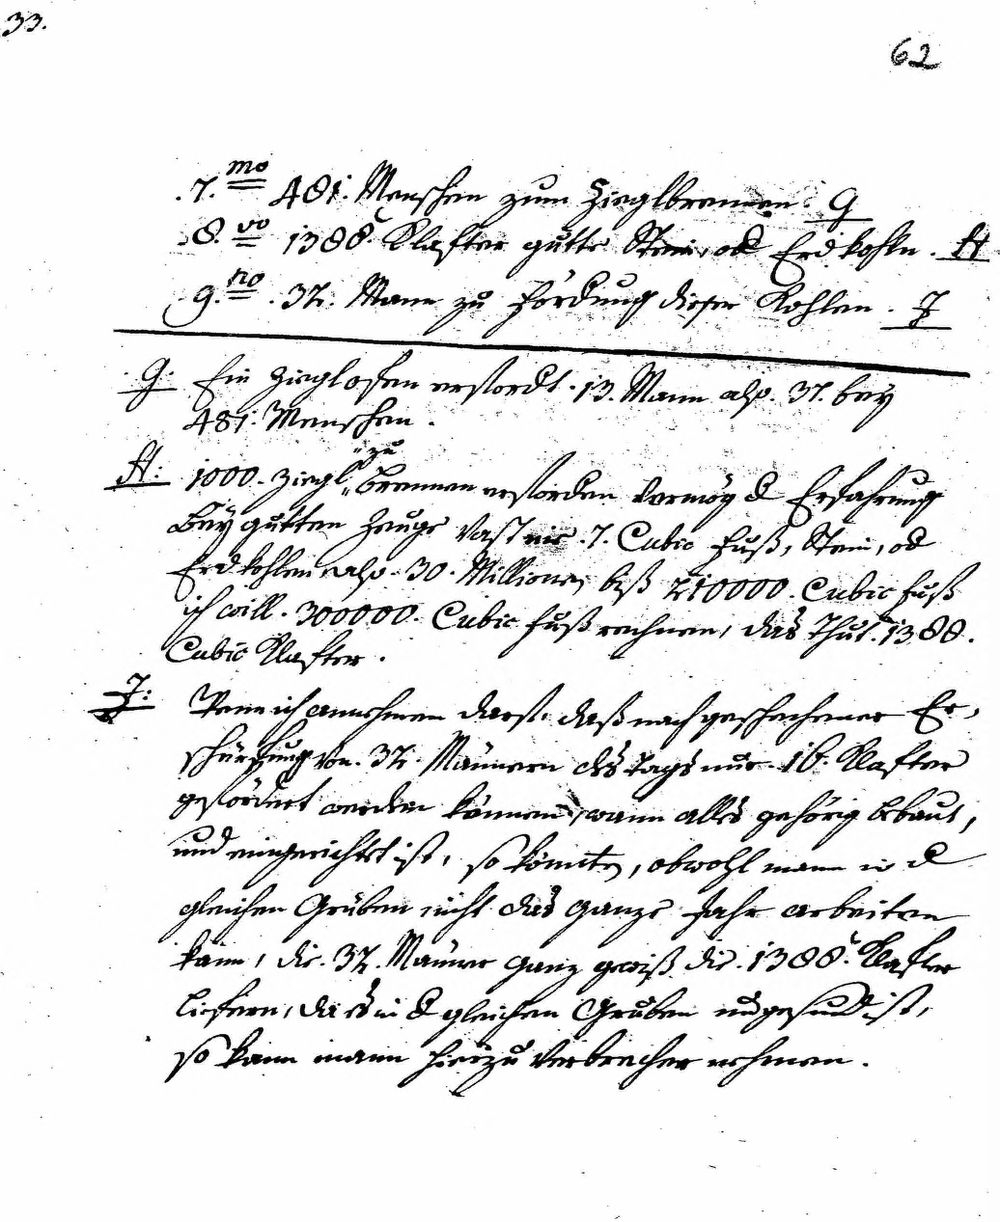 33.
62
7.mo 481. Menschen zum Zieglbrennen. G
8.vo 1388. Klafter gutte Stein, od Erdkohln. H
9.no 32. Mann zu Förderung dieser Kohlen. J
G: Ein Zieglofen erfordert 13. Mann also 37. bey
481. Menschen.
H: 1000. Ziegl zu brennen erforden vermög d Erfahrung
bey gutten Zeuge fast nie 7. Cubic Fuß, Stein, od
Erdkohlen also 30. Millionen biß 210000. Cubic Fuß
ich will 300000. Cubic Fuß rechnen, das thut 1388.
Cubic Klafter.
J: Wenn ich annehmen darf, daß nach geschehener Er-
schürfung von 32. Männern des Tags nur 16. Klafter
gefördert werden können, wann alles gehörig bebaut,
und eingerichtet ist, so könnte, obwohl mann in d
gleichen Gruben nicht das ganze Jahr arbeiten
kann, die 32. Männer ganz gewiß die 1388. Klafter
liefern, da es in d gleichen Gruben ungesund ist,
so kann mann hierzu Verbrecher nehmen.